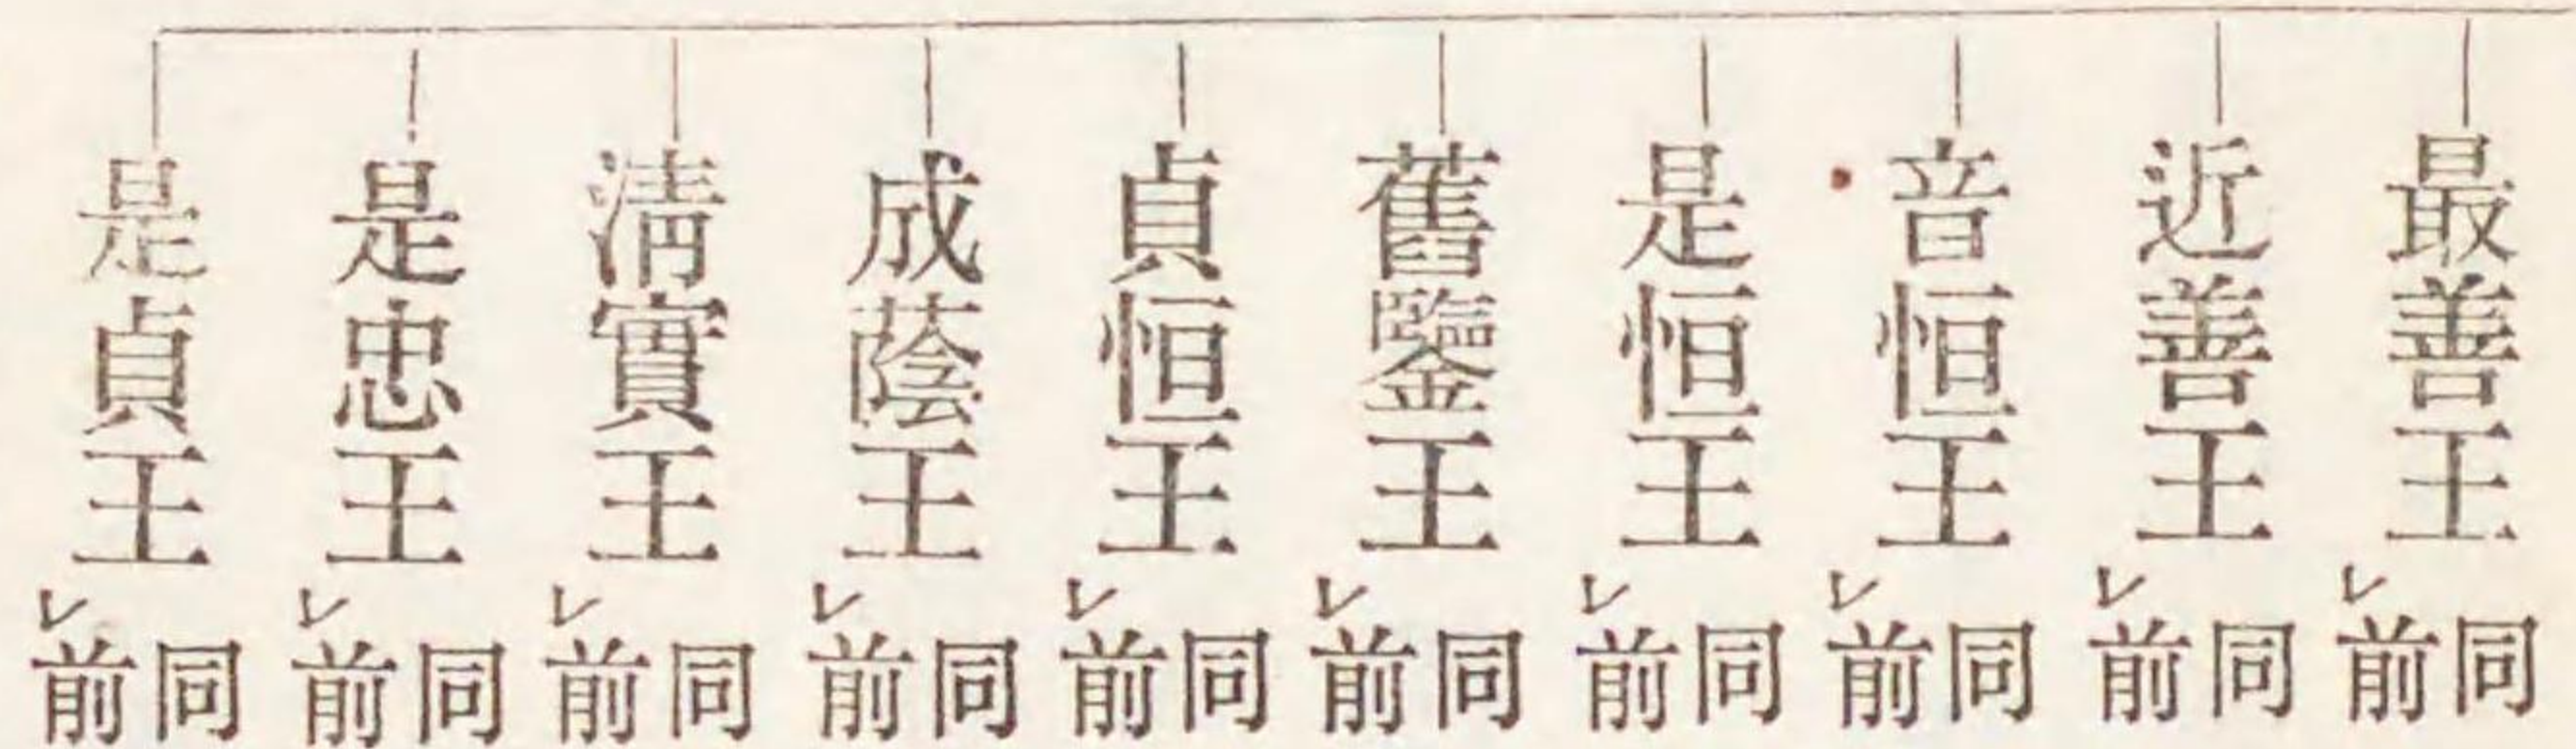 最善王 同前レ
近善王 同前レ
音恒王 同前レ
是恒王 同前レ
舊鑒王 同前レ
貞恒王 同前レ
成蔭王 同前レ
淸實王 同前レ
是忠王 同前レ
是貞王 同前レ